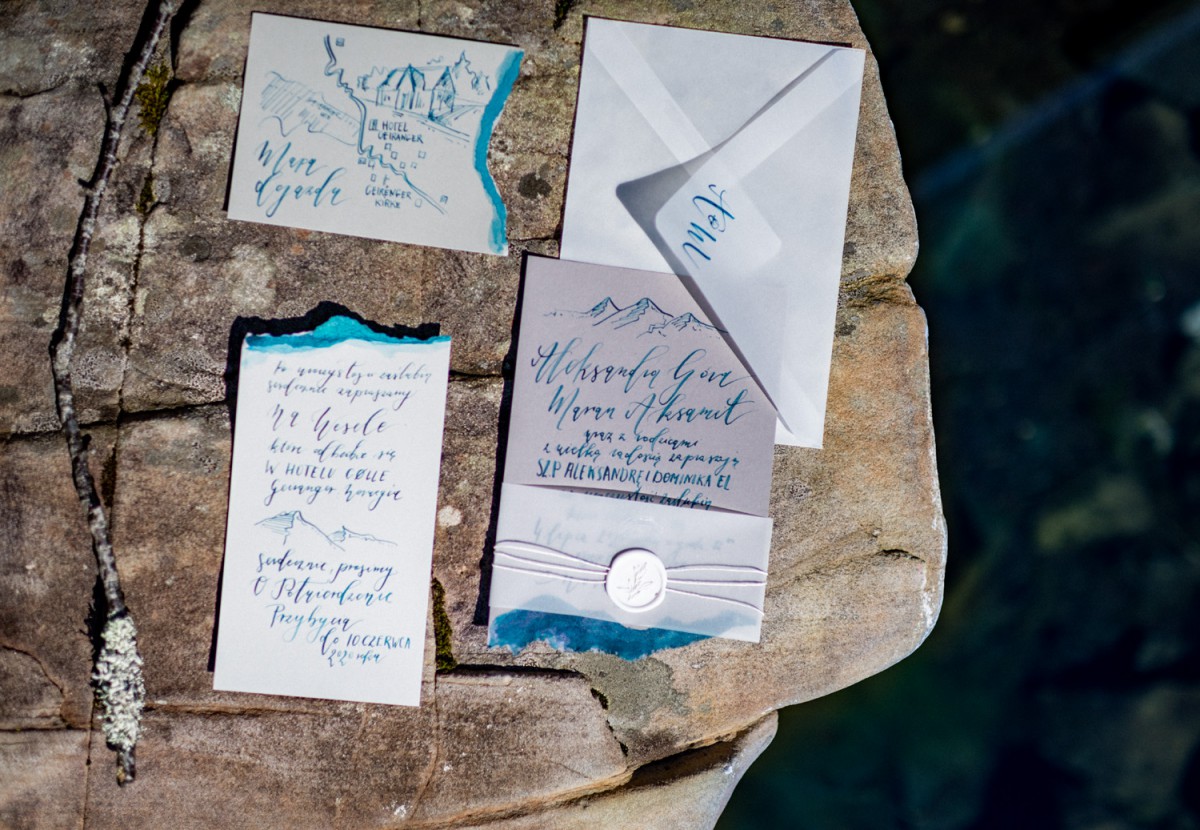 HOTEL
GEIRANGER
Mapa
dojazdu
GEIRANGER
KIRKE
A&M
Aleksandra Góra
Maran Aksamit
wraz z rodzicami
z wielką radością zapraszają
SZP ALEKSANDRĘ I DOMINIKA EL
uroczystość zaślubin
Po uroczystości zaślubin
serdecznie zapraszamy
Na Wesele
które odbędzie się
W HOTELU
Geiranger Norwegia
Serdecznie prosimy
O Potwierdzenie
Przybycia
do 10 CZERWCA
2020 roku